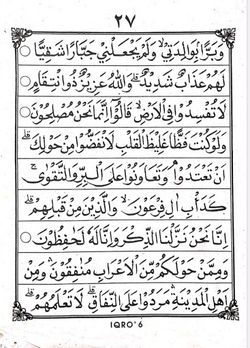 ٢٧
وَبَرًّا بِوَالِدَتِيْ وَلَمْ يَجْعَلْنِيْ جَبَّارًا شَقِيًّا
لَهُمْ عَذَابٌ شَدِيْدٌ ۗ وَاللّٰهُ عَزِيْزٌ ذُوانْتِقَامٍ
لَا تُفْسِدُوْا فِى الْاَرْضِ قَالُوْٓا اِنَّمَا نَحْنُ مُصْلِحُوْنَ
وَلَوْ كُنْتَ فَظًّا غَلِيْظَ الْقَلْبِ لَا نْفَضُّوْا مِنْ حَوْلِكَ ۖ
اَنْ تَعْتَدُوْا ۘ وَتَعَاوَنُوْا عَلَى الْبِرِّ وَالتَّقْوٰى ۖ
كَدَأْبِ اٰلِ فِرْعَوْنَ ۙ وَالَّذِيْنَ مِنْ قَبْلِهِمْ ۗ
اِنَّا نَحْنُ نَزَّلْنَا الذِّكْرَ وَاِنَّا لَهٗ لَحٰفِظُوْنَ
وَمِمَّنْ حَوْلَكُمْ مِّنَ الْاَعْرَابِ مُنٰفِقُوْنَ ۗ وَمِنْ
اَهْلِ الْمَدِيْنَةِ مَرَدُوْا عَلَى النِّفَاقِ ۗ لَا تَعْلَمُهُمْ ۗ
IQRO' 6